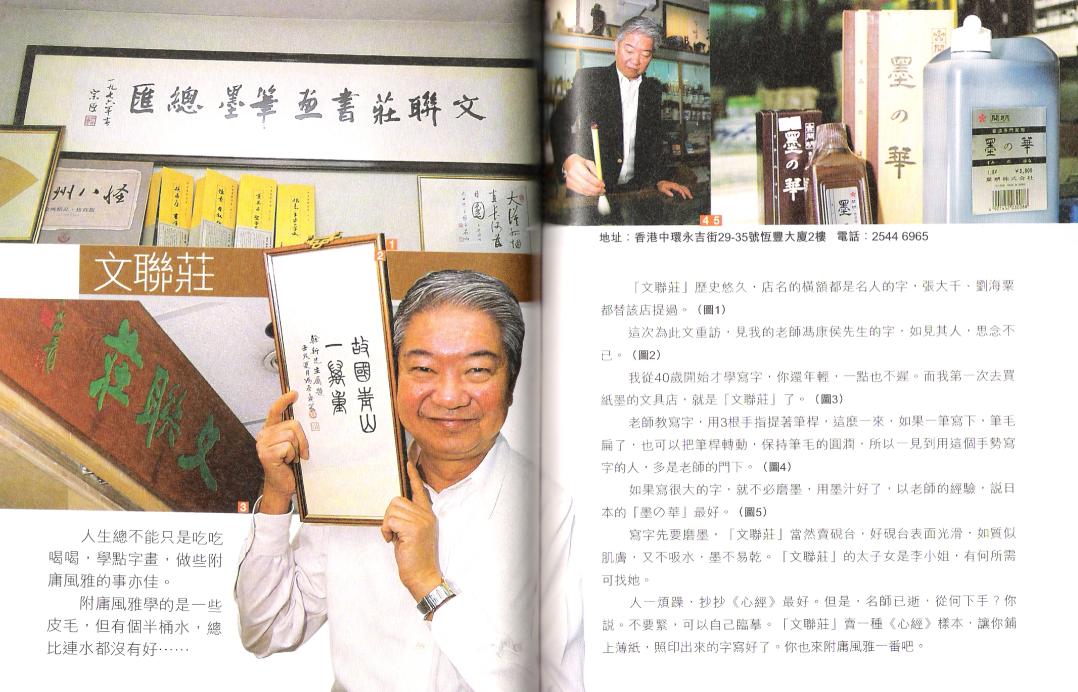 文聯莊書畫筆墨總匯
州八怪
1
文聯莊
2
故國青山
文聯莊
3
人生總不能只是吃吃
喝喝，學點字畫，做些附
庸風雅的事亦佳。
附庸風雅學的是一些
皮毛，但有個半桶水，總
比連水都沒有好……
墨の華
墨の華
墨
開明
墨の華
開明株式会社
4 5
地址：香港中環永吉街29-35號恆豐大廈2樓　電話：2544 6965
「文聯莊」歷史悠久，店名的橫額都是名人的字，張大千、劉海粟
都替該店提過。（圖1）
這次為此文重訪，見我的老師馮康侯先生的字，如見其人，思念不
已。（圖2）
我從40歲開始才學寫字，你還年輕，一點也不遲。而我第一次去買
紙墨的文具店，就是「文聯莊」了。（圖3）
老師教寫字，用3根手指提著筆桿，這麼一來，如果一筆寫下，筆毛
扁了，也可以把筆桿轉動，保持筆毛的圓潤，所以一見到用這個手勢寫
字的人，多是老師的門下。（圖4）
如果寫很大的字，就不必磨墨，用墨汁好了，以老師的經驗，說日
本的「墨の華」最好。（圖5）
寫字先要磨墨，「文聯莊」當然賣硯台，好硯台表面光滑，如質似
肌膚，又不吸水，墨不易乾。「文聯莊」的太子女是李小姐，有何所需
可找她。
人一煩躁，抄抄《心經》最好。但是，名師已逝，從何下手？你
說。不要緊，可以自己臨摹。「文聯莊」賣一種《心經》樣本，讓你鋪
上薄紙，照印出來的字寫好了。你也來附庸風雅一番吧。